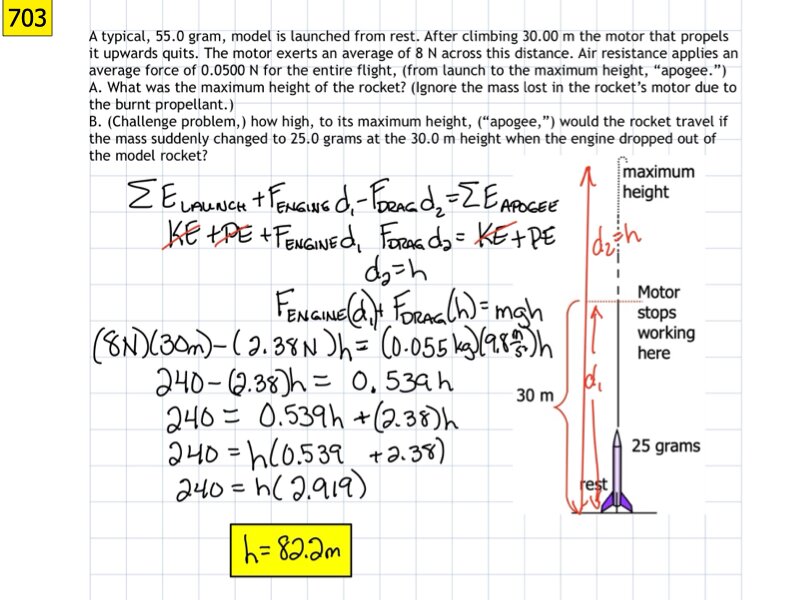 703
A typical, 55.0 gram, model is launched from rest. After climbing 30.00 m the motor that propels
it upwards quits. The motor exerts an average of 8 N across this distance. Air resistance applies an
average force of 0.0500 N for the entire flight, (from launch to the maximum height, “apogee.”)
A. What was the maximum height of the rocket? (Ignore the mass lost in the rocket’s motor due to
the burnt propellant.)
B. (Challenge problem,) how high, to its maximum height, (“apogee,”) would the rocket travel if
the mass suddenly changed to 25.0 grams at the 30.0 m height when the engine dropped out of
the model rocket?
ΣE LAUNCH + FENGINE d₁ - FDRAG d₂ = ΣE APOGEE
KE + PE + FENGINE d₁ FDRAG d₂ = KE + PE
d₂ = h
FENGINE(d₁)+ FDRAG(h) = mgh
(8N)(30m) - (2.38N)h = (0.055 kg)(9.8 m/s²)h
240 - (2.38)h = 0.539h
240 = 0.539h + (2.38)h
240 = h(0.539 + 2.38)
240 = h(2.919)
h = 82.2m
maximum
height
d₂=h
Motor
stops
working
here
d₁
30 m
25 grams
rest